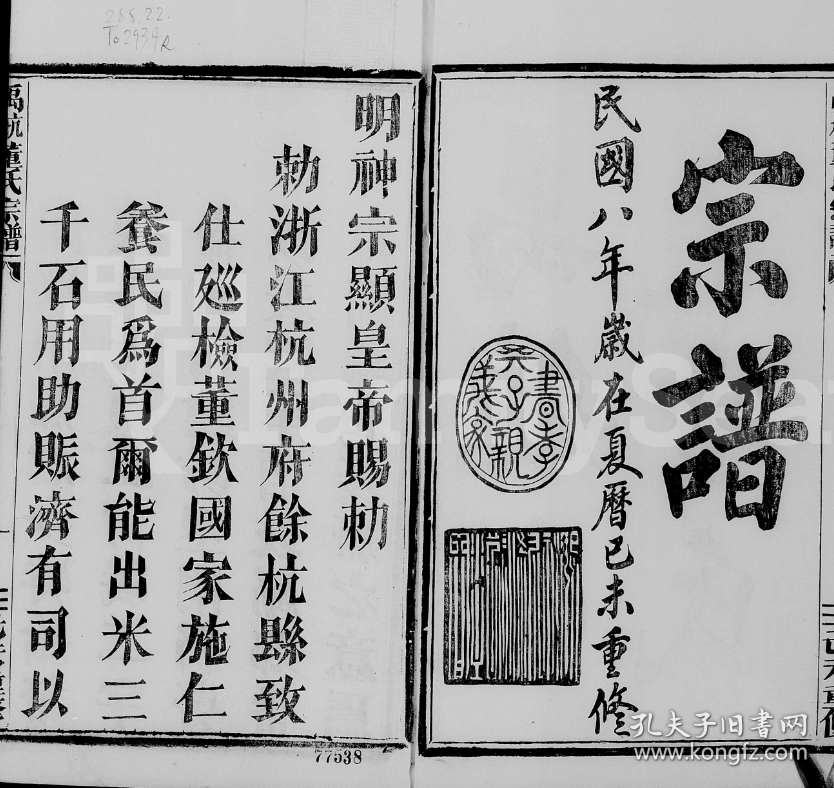 288.22.
To2434R
宗譜
民國八年歲在夏曆己未重修
明神宗顯皇帝賜勅
勅浙江杭州府餘杭縣致
仕廵檢董欽國家施仁
養民爲首爾能出米三
千石用助賑濟有司以
禹杭董氏宗譜
77538
孔夫子旧书网
www.kongfz.com